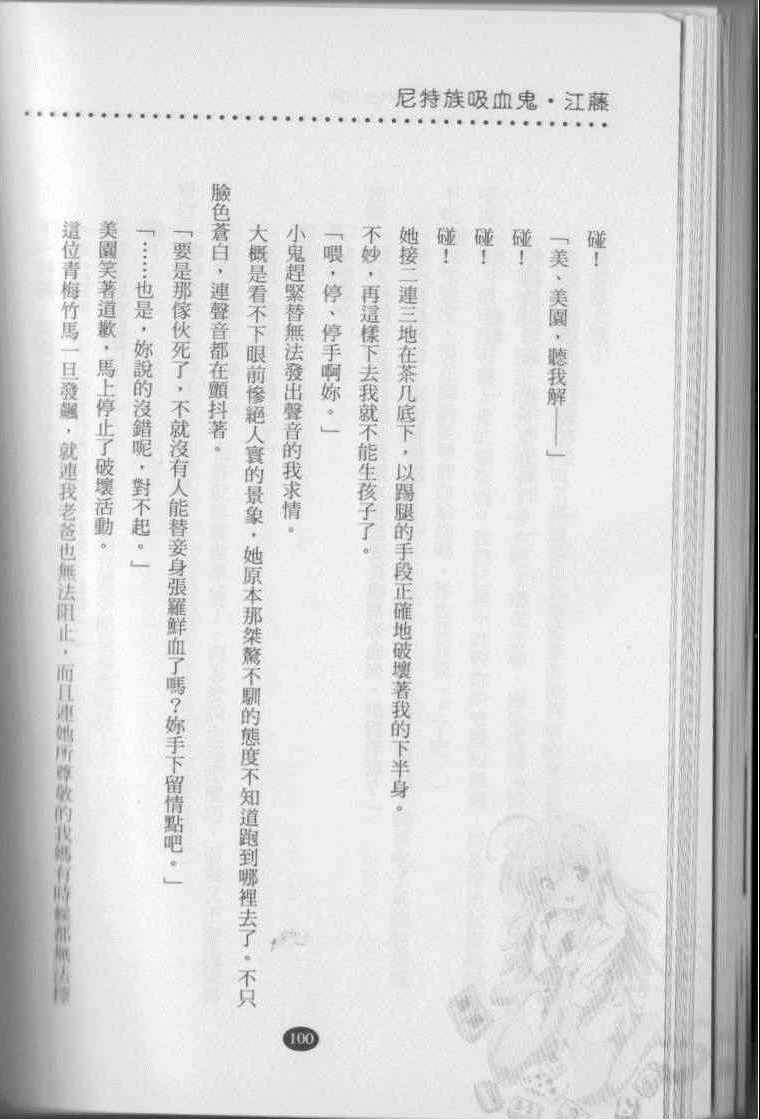 尼特族吸血鬼・江藤
碰！
「美、美園，聽我解——」
碰！
碰！
碰！
她接二連三地在茶几底下，以踢腿的手段正確地破壞著我的下半身。
不妙，再這樣下去我就不能生孩子了。
「喂，停、停手啊妳。」
小鬼趕緊替無法發出聲音的我求情。
大概是看不下眼前慘絕人寰的景象，她原本那桀驁不馴的態度不知道跑到哪裡去了。不只
臉色蒼白，連聲音都在顫抖著。
「要是那傢伙死了，不就沒有人能替妾身張羅鮮血了嗎？妳手下留情點吧。」
「……也是，妳說的沒錯呢，對不起。」
美園笑著道歉，馬上停止了破壞活動。
這位青梅竹馬一旦發飆，就連我老爸也無法阻止，而且連她所尊敬的我媽有時候都無法
100